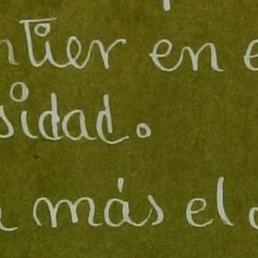 ntier en e
sidad.
más el